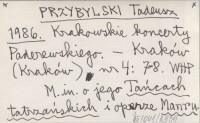 PRZYBYLSKI Tadeusz
1986. Krakowskie koncerty
Paderewskiego. – Kraków
(Kraków) nr 4: 7-8. WHP
M.in. o jego Tańcach
tatrzańskich i operze Manru.